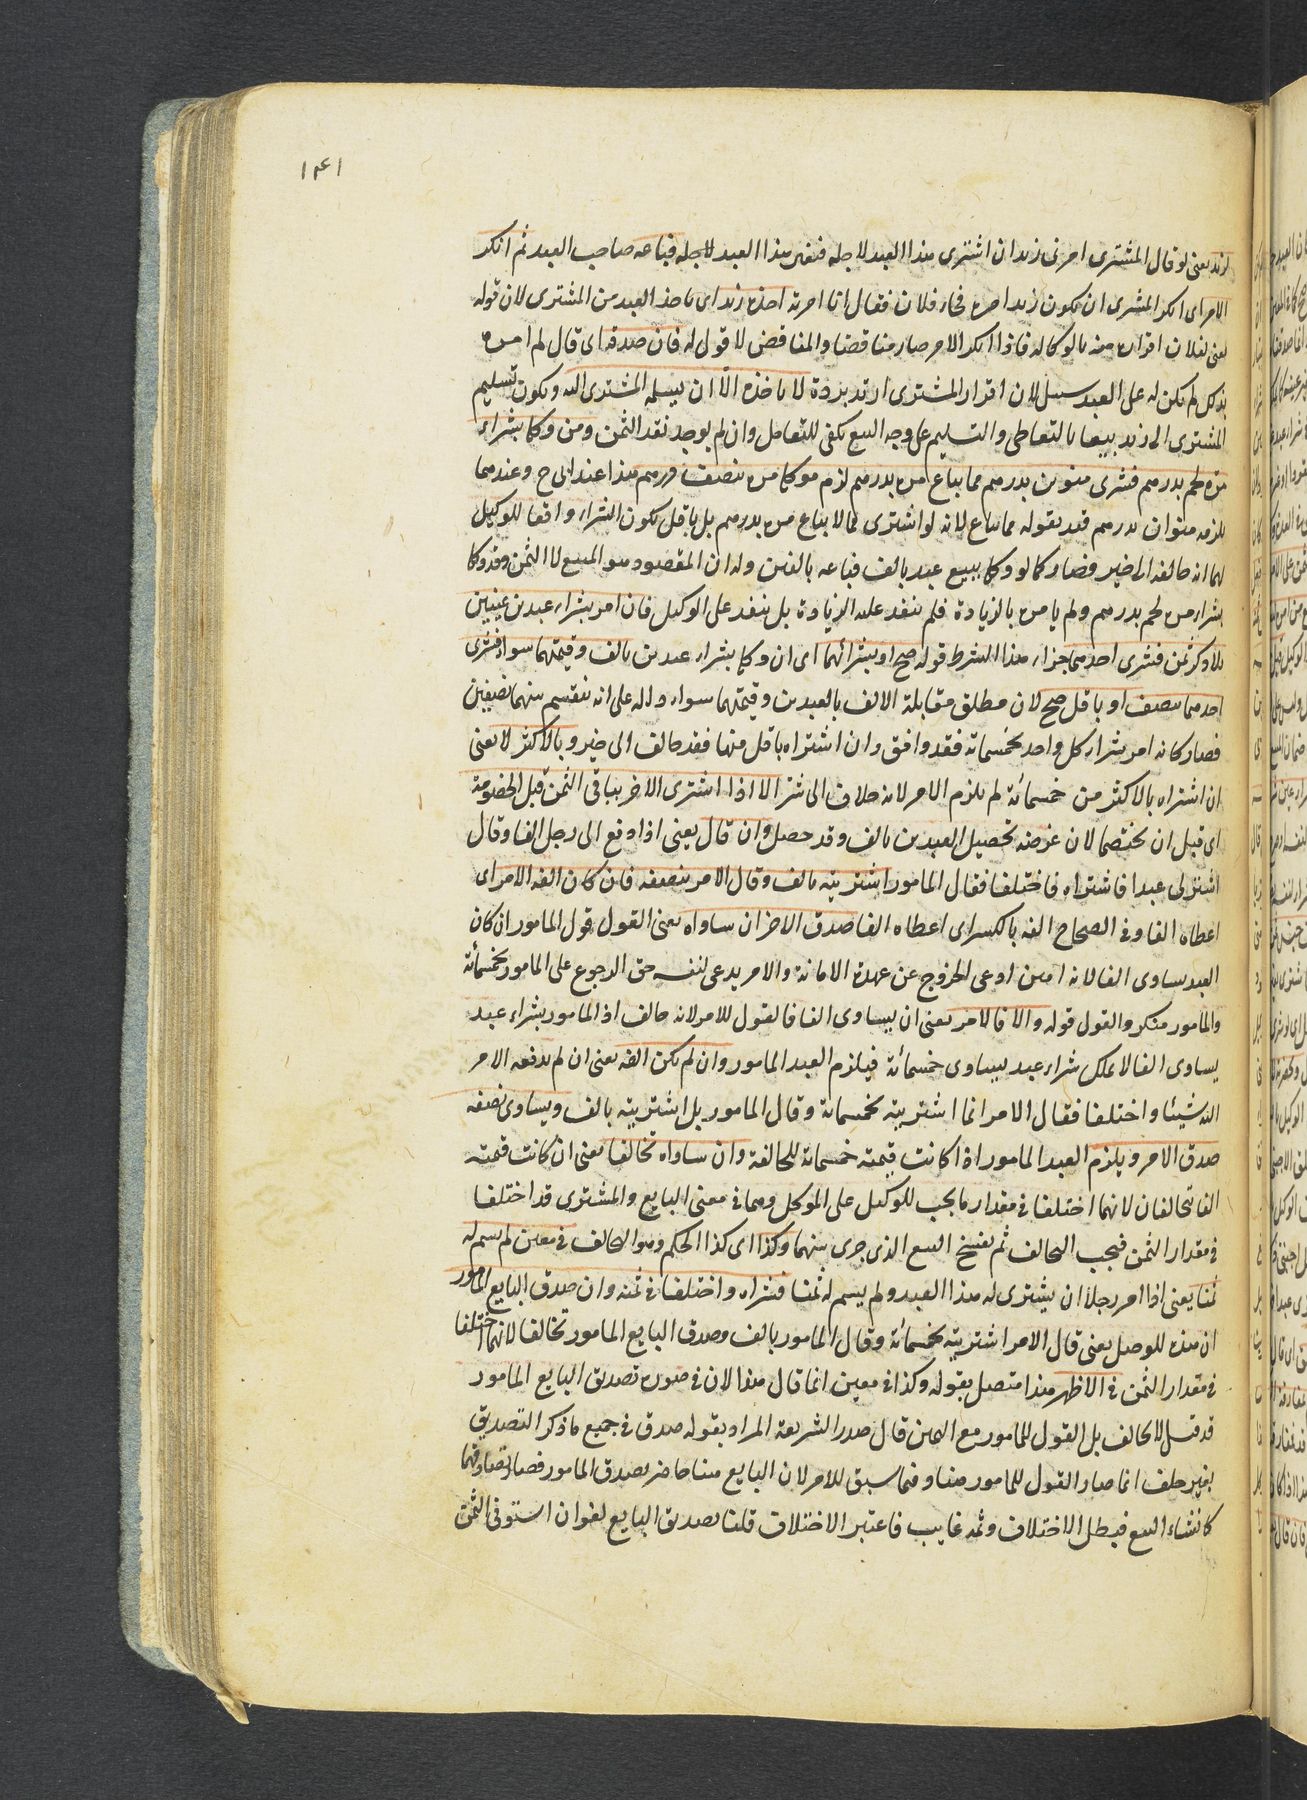 ١٤١
لزيد يعني لو قال المشترى امرنى زيد ان اشترى هذا العبد لاجله فبعنى هذا العبد لاجله فباعه صاحب العبد ثم انكر
الامر اى انكر المشترى ان يكون زيد امره فجاء فلان فقال انا امرته اخذه زيد اى ياخذ العبد من المشترى لان قوله
بعنى لفلان اقرار منه بالوكالة فاذا انكر الامر صار مناقضا والمناقض لا قول له فان صدقه اى قال لم امره
بذلك لم يكن له على العبد سبيل لان اقرار المشترى ارتد برده لا ياخذه الا ان يسلمه المشترى اليه ويكون تسليم
المشترى الى زيد بيعا بالتعاطى والتسليم على وجه البيع يكفى للتعامل وان لم يوجد نقد الثمن ومن وكل بشراء
من لحم بدرهم فشرى منوين بدرهم مما يباع من بدرهم لزم موكله من بنصف درهم هذا عند ابى ح وعندهما
يلزمه منوان بدرهم قيد بقوله مما يباع لانه لو اشترى مما لا يباع من بدرهم بل باقل يكون الشراء واقعا للوكيل
لهما انه خالفه الى خير فصار كما لو وكل ببيع عبد بالف فباعه بالفين وله ان المقصود هو المبيع لا الثمن وقد وكل
بشراء من لحم بدرهم ولم يامره بالزيادة فلم ينفذ عليه الزيادة بل ينفذ على الوكيل فان امر بشراء عبدين عينين
بلا ذكر ثمن فشرى احدهما جزاء هذا الشرط قوله صح او بشرائهما اى ان وكل بشراء عبدين بالف وقيمتهما سواء فشرى
احدهما بنصفه او باقل صح لان مطلق مقابلة الالف بالعبدين وقيمتهما سواء دالة على انه ينقسم بينهما نصفين
فصار كانه امر بشراء كل واحد بخمسمائة فقد وافق وان اشتراه باقل منها فقد خالف الى خير وبالاكثر لا يعنى
ان اشتراه بالاكثر من خمسمائة لم يلزم الامر لانه خلاف الى شر الا اذا اشترى الاخر بباقى الثمن قبل الخصومة
اى قبل ان يختصما لان غرضه تحصيل العبدين بالف وقد حصل وان قال يعنى اذا دفع الى رجل الفا وقال
اشتر لى عبدا فاشتراه فاختلفا فقال المامور اشتريته بالف وقال الامر بنصفه فان كان الفه الامر اى
اعطاه الفا وفى الصحاح الفه بالكسر اى اعطاه الفا صدق الاخر ان ساواه يعنى القول قول المامور ان كان
العبد يساوى الفا لانه امين ادعى الخروج عن عهدة الامانة والامر يدعى لنفسه حق الرجوع على المامور بخمسمائة
والمامور منكر والقول قوله والا فالامر يعنى ان يساوى الفا فالقول للامر لانه خالف اذ المامور بشراء عبد
يساوى الفا لا يملك شراء عبد يساوى خمسمائة فيلزم العبد المامور وان لم يكن الفه يعنى ان لم يدفعه الامر
اليه شيئا واختلفا فقال الامر انما اشتريته بخمسمائة وقال المامور بل اشتريته بالف ويساوى نصفه
صدق الامر ويلزم العبد المامور اذا كانت قيمته خمسمائة للمخالفة وان ساواه تحالفا يعنى ان كانت قيمته
الفا تحالفان لانهما اختلفا فى مقدار ما يجب للوكيل على الموكل وهما فى معنى البايع والمشترى قد اختلفا
فى مقدار الثمن فيجب التحالف ثم يفسخ البيع الذى جرى بينهما وكذا اى كذا الحكم وهو التحالف فى معين لم يسم له
ثمنا يعنى اذا امر رجلا ان يشترى له هذا العبد ولم يسم له ثمنا فشراه واختلفا فى ثمنه وان صدق البايع المامور
ان هذه للوصل يعنى قال الامر اشتريته بخمسمائة وقال المامور بالف وصدق البايع المامور تحالفا لانهما اختلفا
فى مقدار الثمن فى الاظهر هذا متصل بقوله وكذا فى معين انما قال هذا لان فى صورة تصديق البايع المامور
قد قيل لا تحالف بل القول للمامور مع اليمين قال صدر الشريعة المراد بقوله صدق فى جميع ما ذكر التصديق
بغير حلف انما صار القول للمامور هنا وفيما سبق للامر لان البايع هنا حاضر يصدق المامور فصار تصادقهما
كانشاء البيع فيبطل الاختلاف وثمه غايب فاعتبر الاختلاف قلنا تصديق البايع لغو ان استوفى الثمن